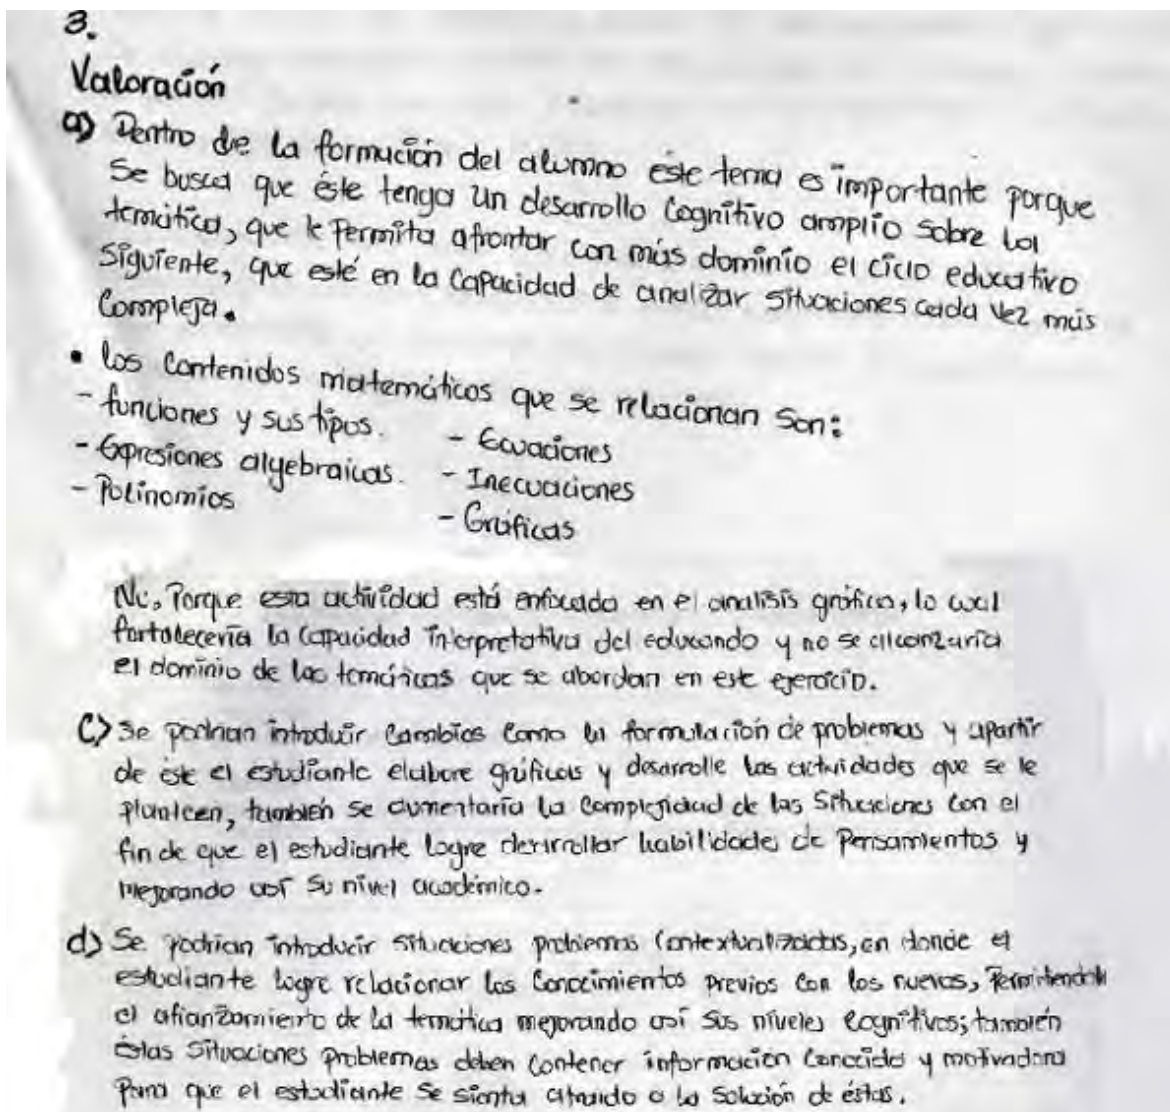 3.
Valoración
a) Dentro de la formación del alumno éste tema es importante porque
Se busca que éste tenga un desarrollo Cognitivo amplio sobre la
temática, que le Permita afrontar con más dominio el ciclo educativo
Siguiente, que esté en la Capacidad de analizar situaciones cada vez más
Compleja.
• los Contenidos matemáticos que se relacionan Son:
- funciones y sus tipos. - Ecuaciones
- Expresiones algebraicas. - Inecuaciones
- Polinomios - Gráficas
No, Porque esta actividad está enfocada en el analisis gráfico, lo cual
fortalecería la capacidad interpretativa del educando y no se alcanzaría
el dominio de las temáticas que se abordan en este ejercicio.
C) Se podrian introducir Cambios Como la formulación de problemas y apartir
de éste el estudiante elabore gráficas y desarrolle las actividades que se le
planteen, también se aumentaría la Complejidad de las Situaciones con el
fin de que el estudiante logre desarrollar habilidades de Pensamientos y
mejorando así Su nivel académico.
d) Se podrian introducir situaciones problemas Contextualizadas, en donde el
estudiante logre relacionar los Conocimientos previos con los nuevos, Permitiendole
el afianzamiento de la temática mejorando así sus niveles Cognitivos; también
éstas Situaciones problemas deben Contener información Conocida y motivadora
Para que el estudiante Se sienta atraido a la Solución de éstas.